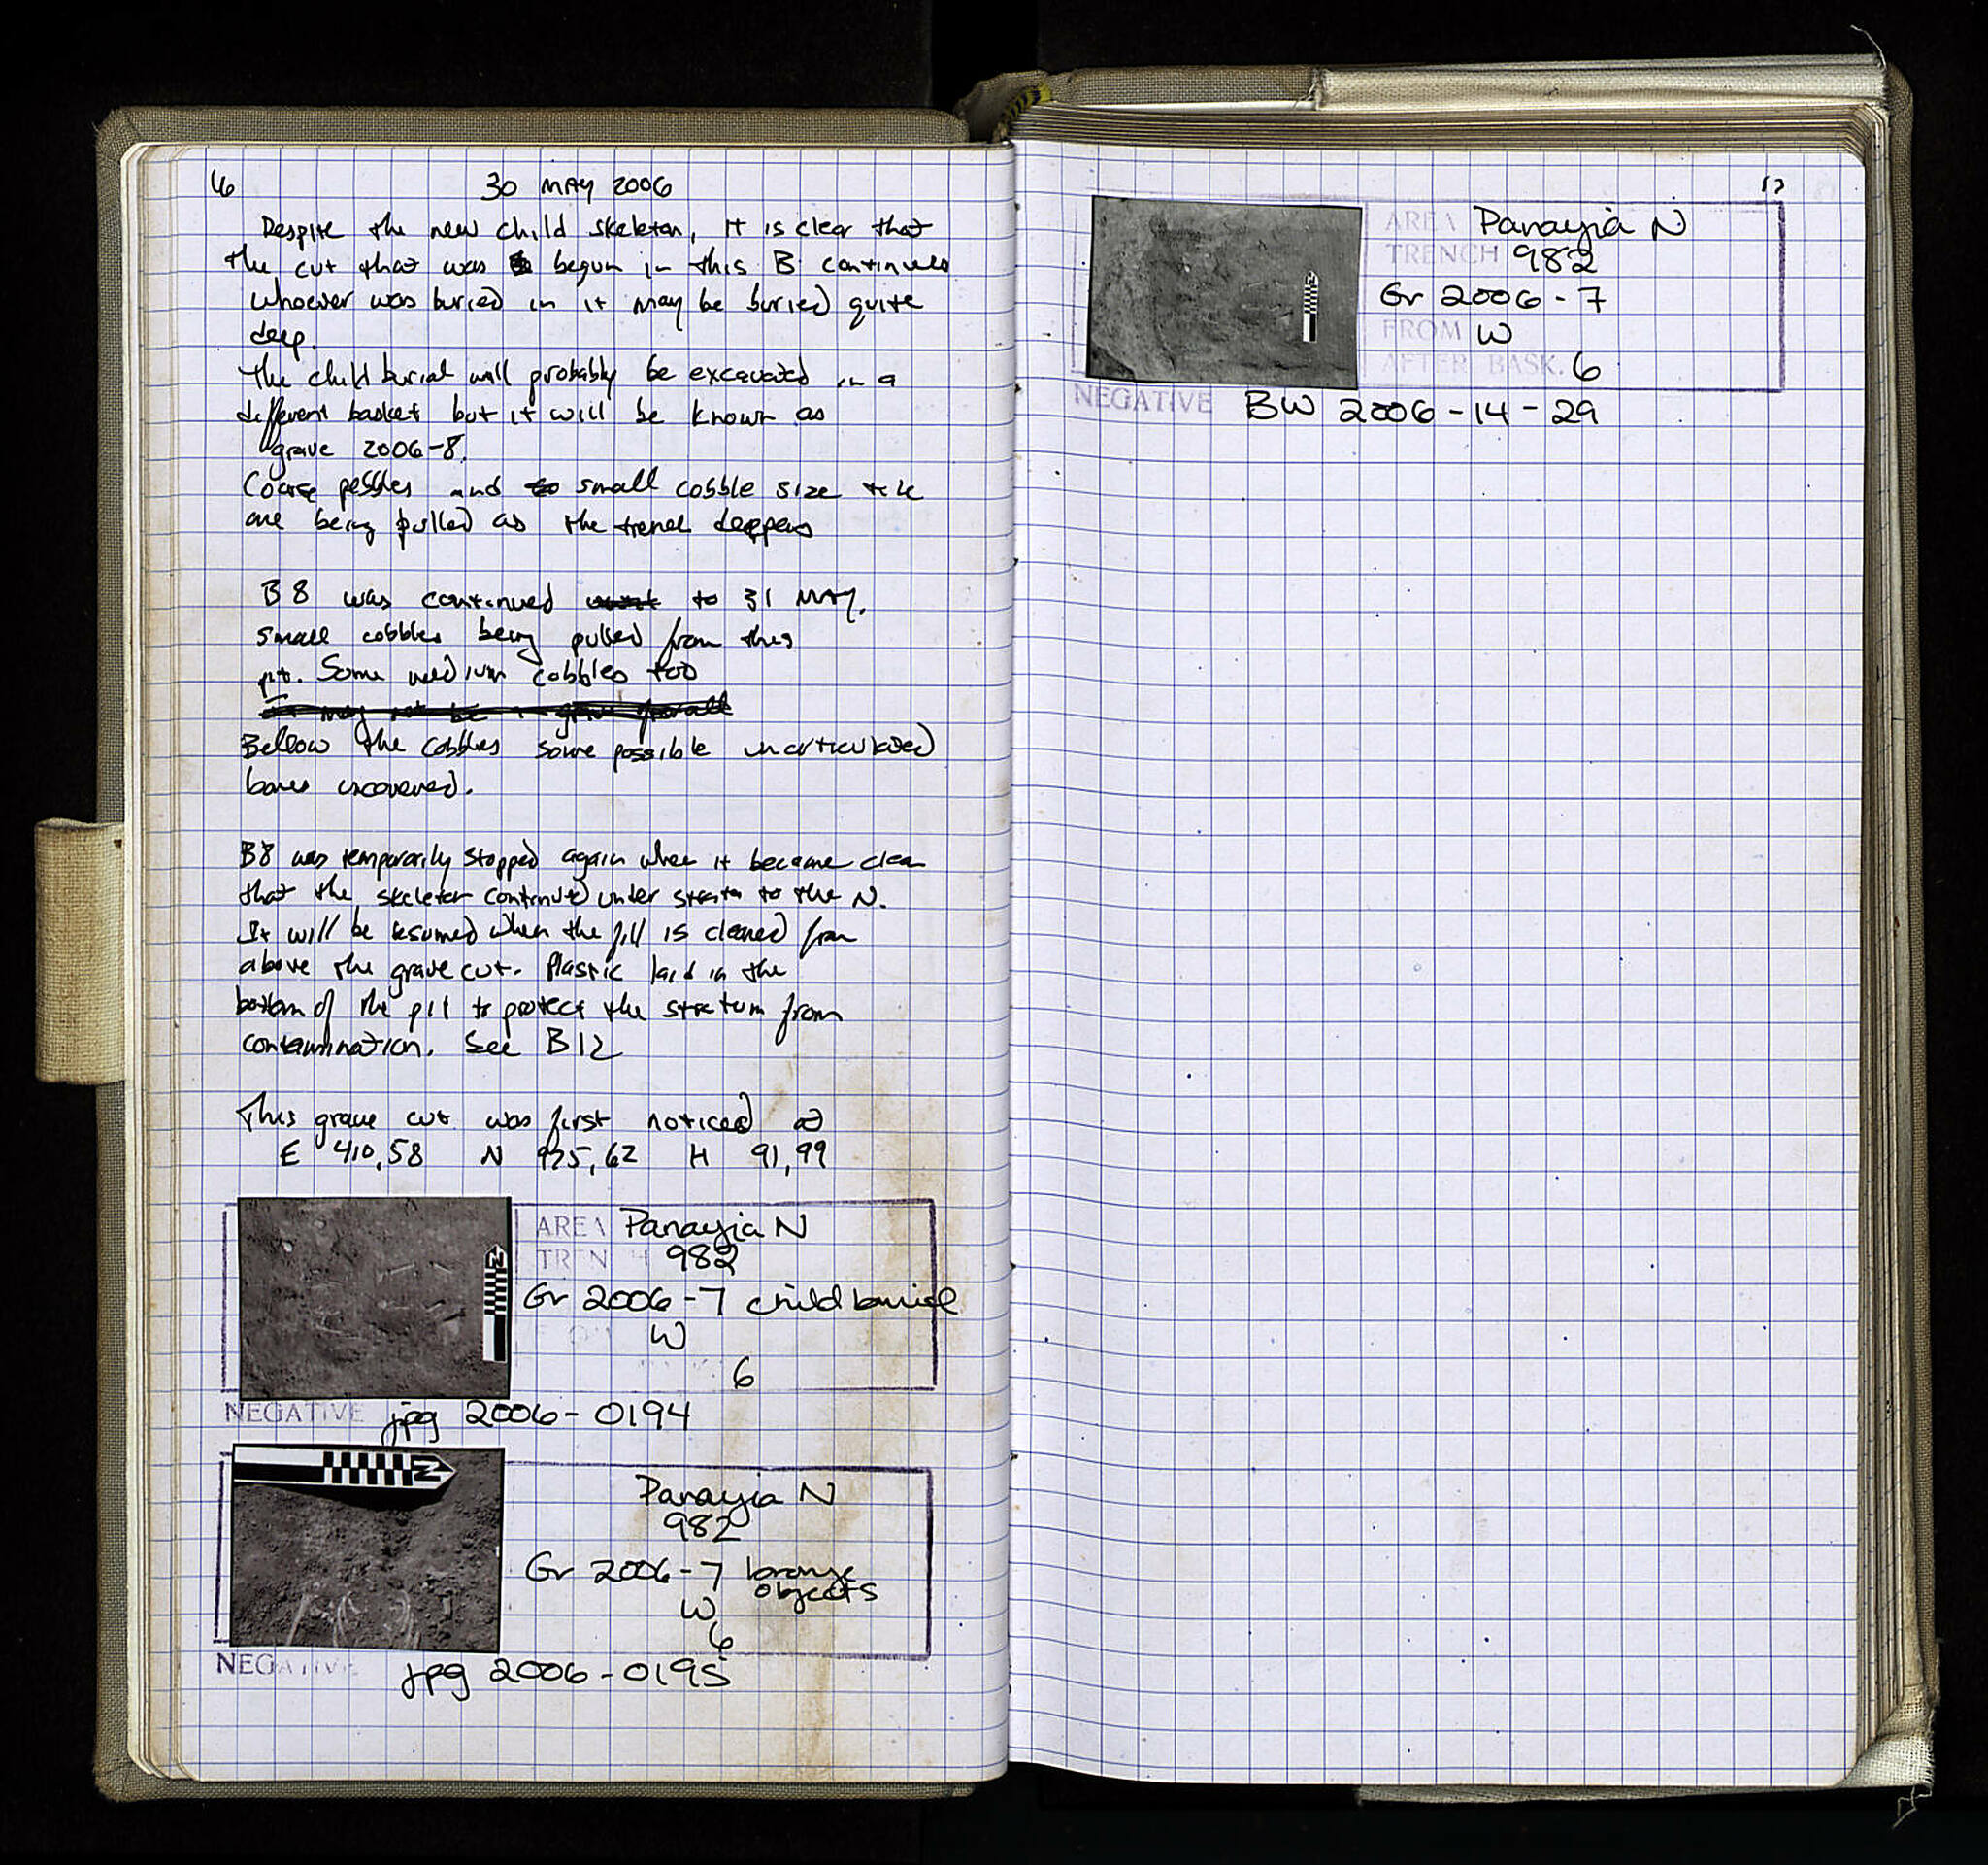 16
30 MAY 2006
Despite the new child skeleton, it is clear that
the cut that was begun in this B continues
whoever was buried in it may be buried quite
deep.
The child burial will probably be excavated in a
different basket but it will be known as
grave 2006-8.
Coarse pebbles and small cobble size tile
are being pulled as the trench deepens
B 8 was continued to 31 MAY.
small cobbles being pulled from this
pit. Some medium cobbles too
it may not be a grave
Bellow the cobbles some possible unarticulated
bones uncovered.
B8 was temporarily stopped again when it became clear
that the skeleton continued under strata to the N.
It will be resumed when the fill is cleaned from
above the grave cut. Plastic laid in the
bottom of the pit to protect the stratum from
contamination. See B12
This grave cut was first noticed @
E 410,58 N 925,62 H 91,99
AREA Panayia N
TRENCH 982
Gr 2006-7 child burial
W
6
NEGATIVE jpg 2006-0194
Panayia N
982
Gr 2006-7 bronze
objects
W
6
NEGATIVE jpg 2006-0195
17
AREA Panayia N
TRENCH 982
Gr 2006-7
FROM W
AFTER BASK. 6
NEGATIVE BW 2006-14-29